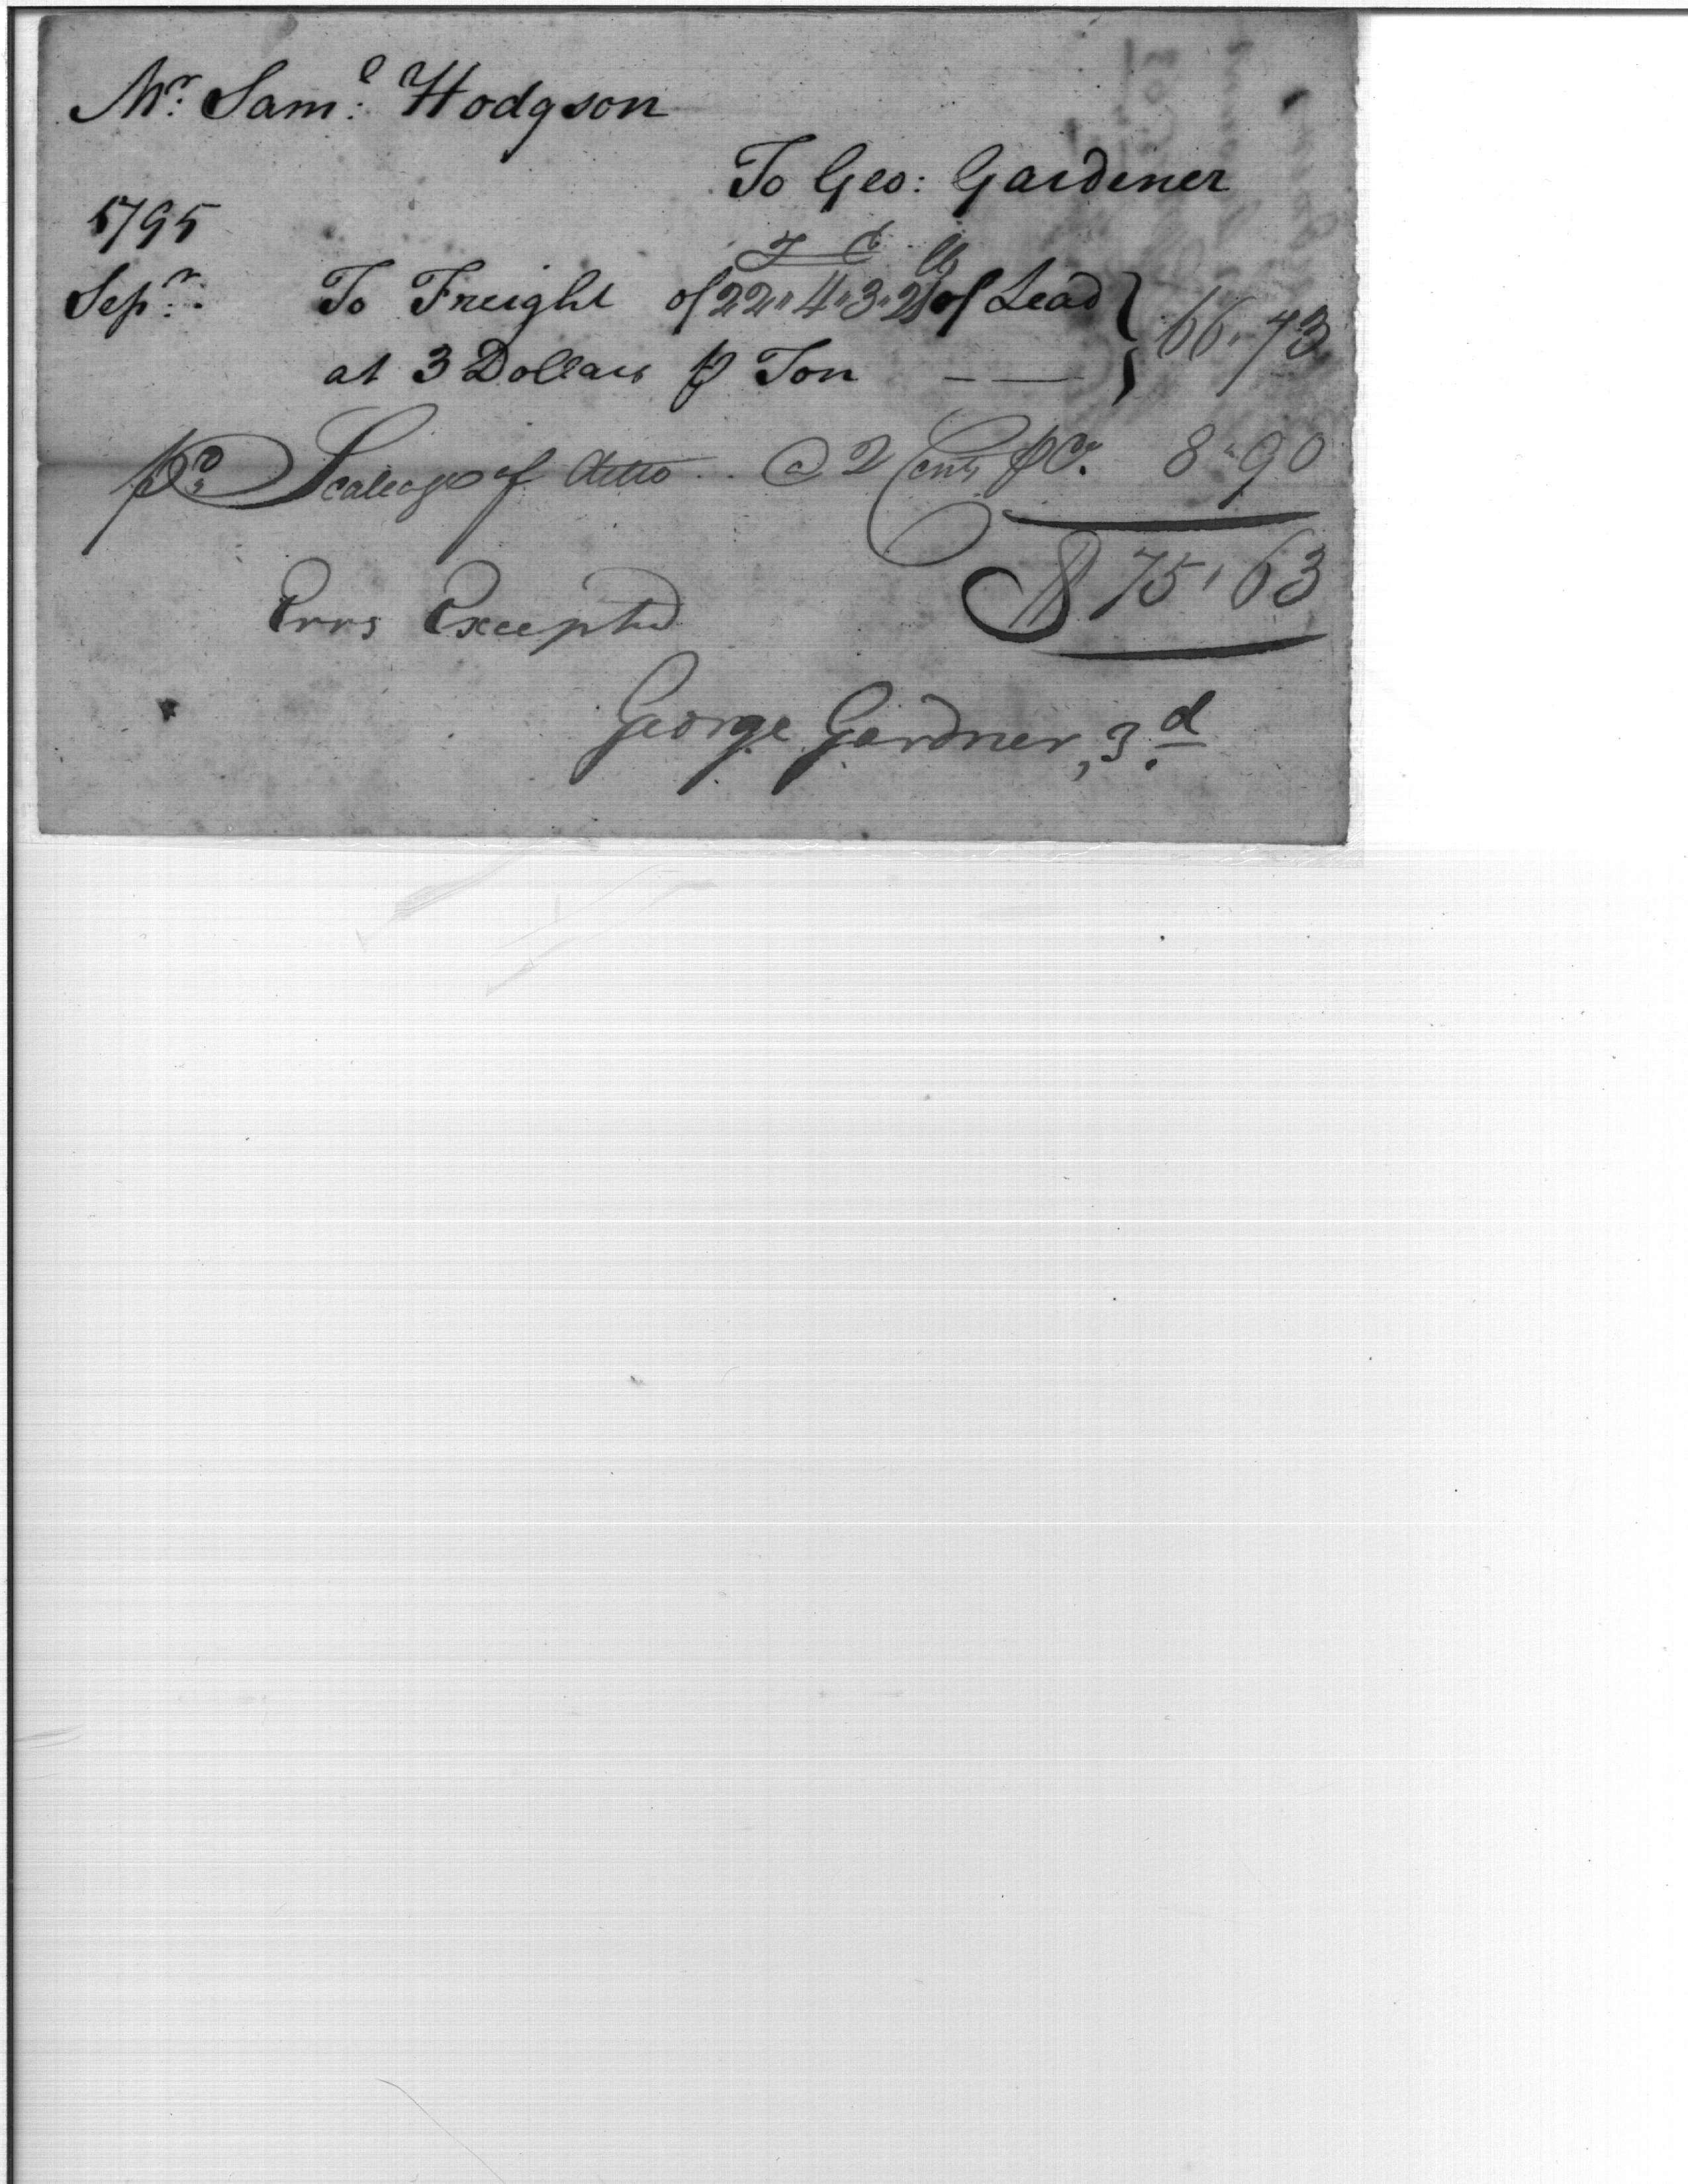 Mr. Saml. Hodgson
To Geo: Gardener
1795
T C lb
Sepr. To Freight of 22"4"3"2 of Lead
at 3 Dollars ⅌ Ton — — 66.73
pd. Scaleage of ditto .. @ 2 Cents ⅌ C. 8"90
$ 75.63
Errs Excepted
George Gardner, 3.d